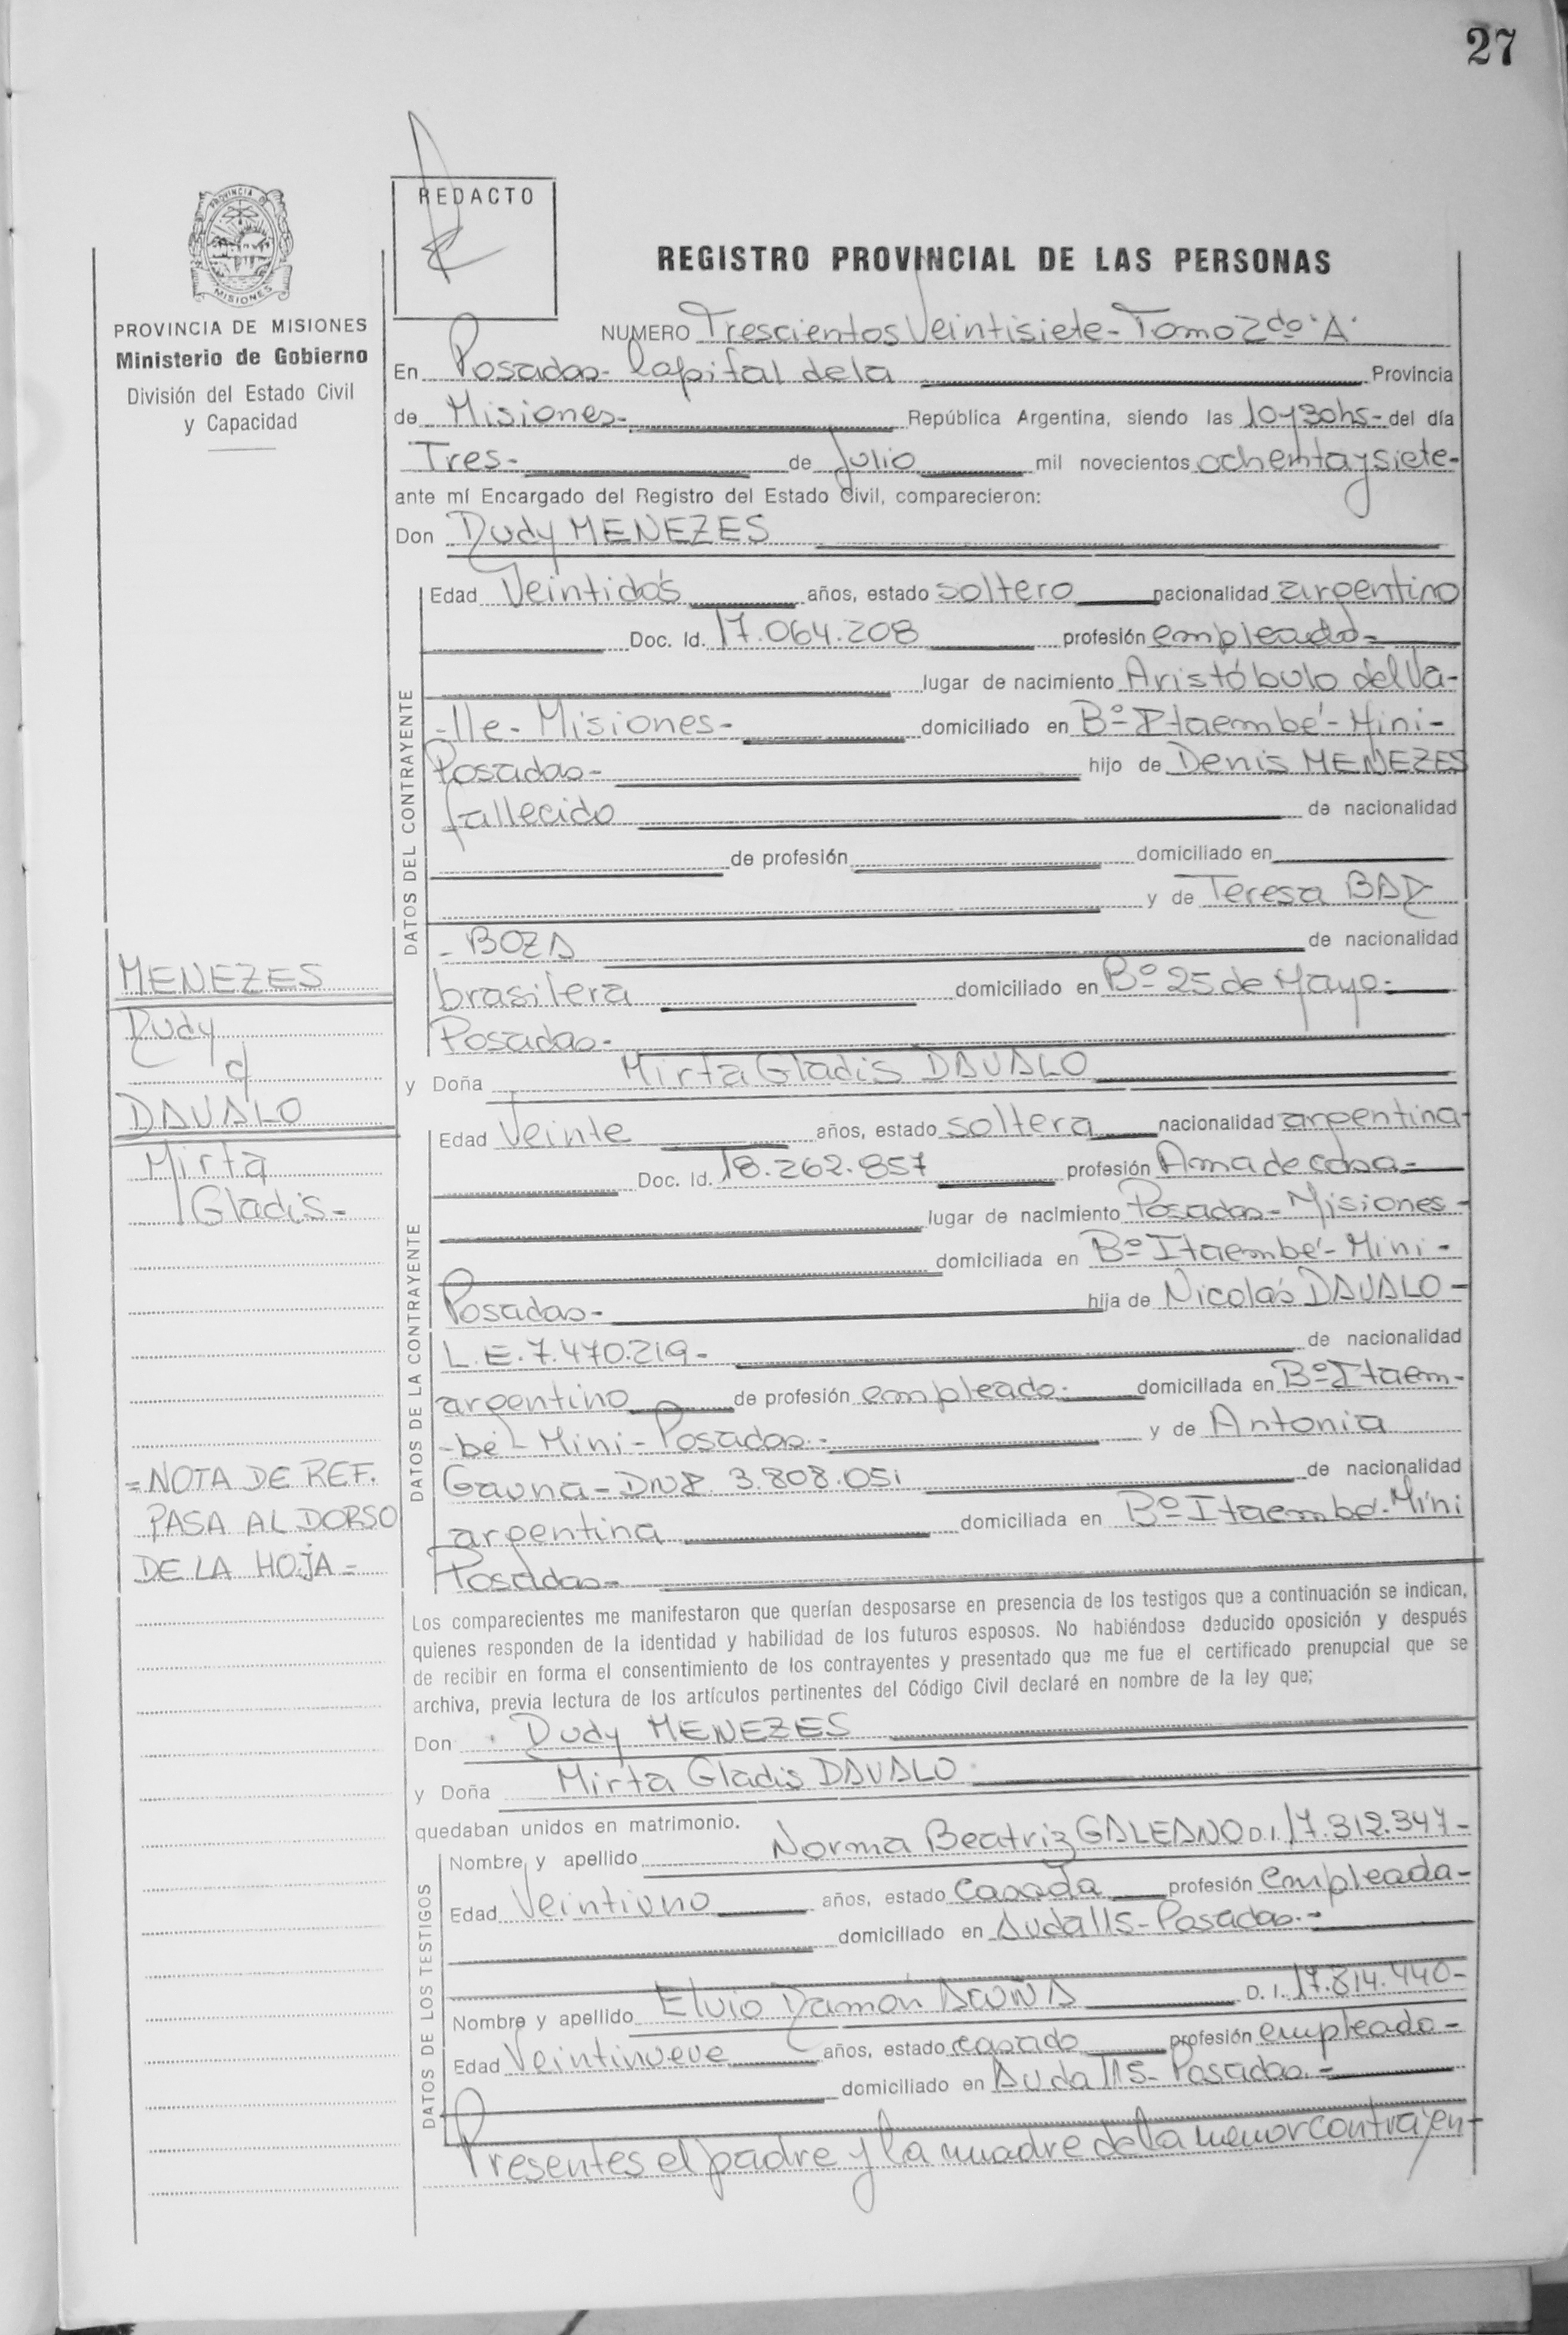 27
REDACTO
PROVINCIA DE MISIONES
MISIONES
PROVINCIA DE MISIONES
Ministerio de Gobierno
División del Estado Civil
y Capacidad
REGISTRO PROVINCIAL DE LAS PERSONAS
NUMERO Trescientos Veintisiete - Tomo 2do "A"
En Posadas - Capital de la Provincia
de Misiones - República Argentina, siendo las 10 y 30 hs - del día
Tres - de Julio mil novecientos ochenta y siete -
ante mí Encargado del Registro del Estado Civil, comparecieron:
Don Rudy MENEZES
DATOS DEL CONTRAYENTE
Edad Veintidós años, estado soltero nacionalidad argentino
Doc. Id. 17.064.208 profesión empleado -
lugar de nacimiento Aristóbulo del Va-
-lle - Misiones - domiciliado en Bº Itaembé - Mini -
Posadas - hijo de Denis MENEZES
fallecido de nacionalidad
de profesión domiciliado en
y de Teresa BAR
- BOZA de nacionalidad
brasilera domiciliado en Bº 25 de Mayo -
Posadas -
y Doña Mirta Gladis DAVALO
DATOS DE LA CONTRAYENTE
Edad Veinte años, estado soltera nacionalidad argentina
Doc. Id. 18.262.857 profesión Ama de casa -
lugar de nacimiento Posadas - Misiones -
domiciliada en Bº Itaembé - Mini -
Posadas - hija de Nicolás DAVALO -
L.E. 7.470.219 - de nacionalidad
argentino de profesión empleado - domiciliada en Bº Itaem-
-bé - Mini - Posadas - y de Antonia
Gauna - DNI. 3.808.051 de nacionalidad
argentina domiciliada en Bº Itaembé - Mini
Posadas -
MENEZES
Rudy
c/
DAVALO
Mirta
Gladis -
= NOTA DE REF.
PASA AL DORSO
DE LA HOJA =
Los comparecientes me manifestaron que querían desposarse en presencia de los testigos que a continuación se indican,
quienes responden de la identidad y habilidad de los futuros esposos. No habiéndose deducido oposición y después
de recibir en forma el consentimiento de los contrayentes y presentado que me fue el certificado prenupcial que se
archiva, previa lectura de los artículos pertinentes del Código Civil declaré en nombre de la ley que;
Don Rudy MENEZES
y Doña Mirta Gladis DAVALO
quedaban unidos en matrimonio.
DATOS DE LOS TESTIGOS
Nombre y apellido Norma Beatriz GALEANO D.I. 17.312.347 -
Edad Veintiuno años, estado casada profesión empleada -
domiciliado en Avda 115 - Posadas -
Nombre y apellido Elvio Ramón ACUÑA D.I. 17.814.440 -
Edad Veintinueve años, estado casado profesión empleado -
domiciliado en Avda 115 - Posadas -
Presentes el padre y la madre de la menor contrayen-